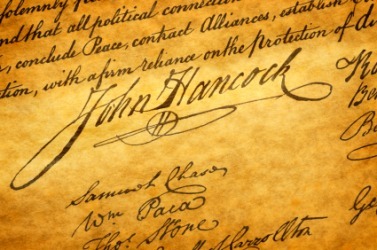 solemnly
and that all political connection
, conclude Peace, contract Alliances, establish
tion, with a firm reliance on the Protection of
John Hancock
Samuel Chase
Wm Paca
Thos Stone